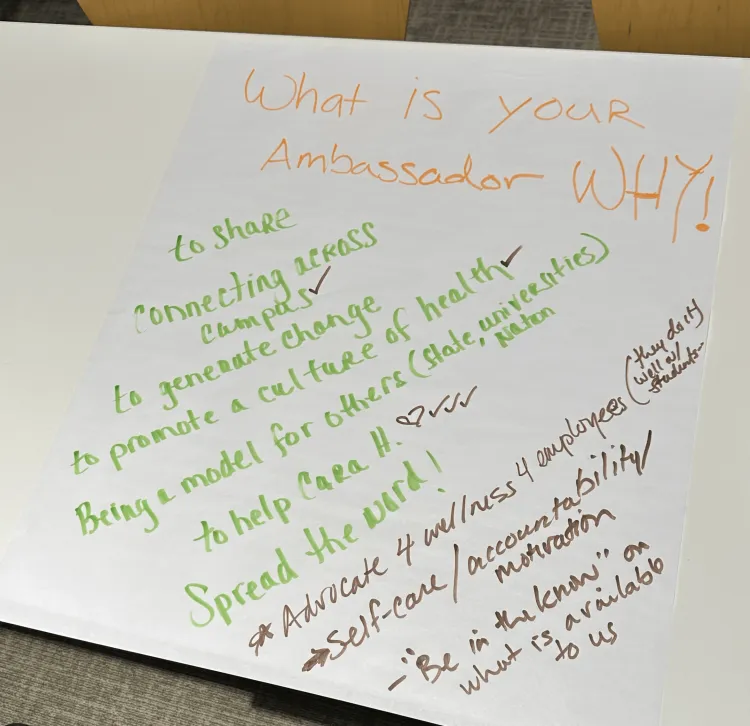 What is your
Ambassador WHY!
to share
connecting across
campus ✓
to generate change
to promote a culture of health ✓
Being a model for others (state, universities)
Nation
to help Cara H. ♡✓✓✓
Spread the word!
* Advocate 4 wellness 4 employees (they do it)
well w/
students
→ Self-care / accountability/
motivation
- "Be in the know" on
what is available
to us